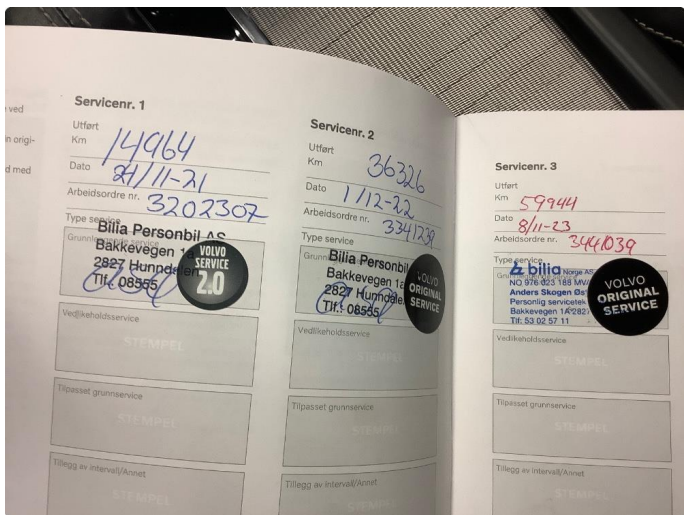 ved
n origi-
d med
Servicenr. 1
Utført
Km 14964
Dato 21/11-21
Arbeidsordre nr. 3202307
Type service
Grunnleggende service
Bilia Personbil AS
Bakkevegen 1a
2827 Hunndalen
Tlf. 08555
VOLVO
SERVICE
2.0
Vedlikeholdsservice
STEMPEL
Tilpasset grunnservice
STEMPEL
Tillegg av intervall/Annet
STEMPEL
Servicenr. 2
Utført
Km 36326
Dato 1/12-22
Arbeidsordre nr. 3341239
Type service
Bilia Personbil
Bakkevegen 1a
2827 Hunndalen
Tlf.: 08555
VOLVO
ORIGINAL
SERVICE
Vedlikeholdsservice
STEMPEL
Tilpasset grunnservice
STEMPEL
Tillegg av intervall/Annet
STEMPEL
Servicenr. 3
Utført
Km 59944
Dato 8/11-23
Arbeidsordre nr. 3441039
Type service
bilia Norge AS
NO 976 023 185 MVA
Anders Skogen
Personlig servicetek
Bakkevegen 1A 282
Tlf: 53 02 57 11
VOLVO
ORIGINAL
SERVICE
Vedlikeholdsservice
STEMPEL
Tilpasset grunnservice
STEMPEL
Tillegg av intervall/Annet
STEMPEL